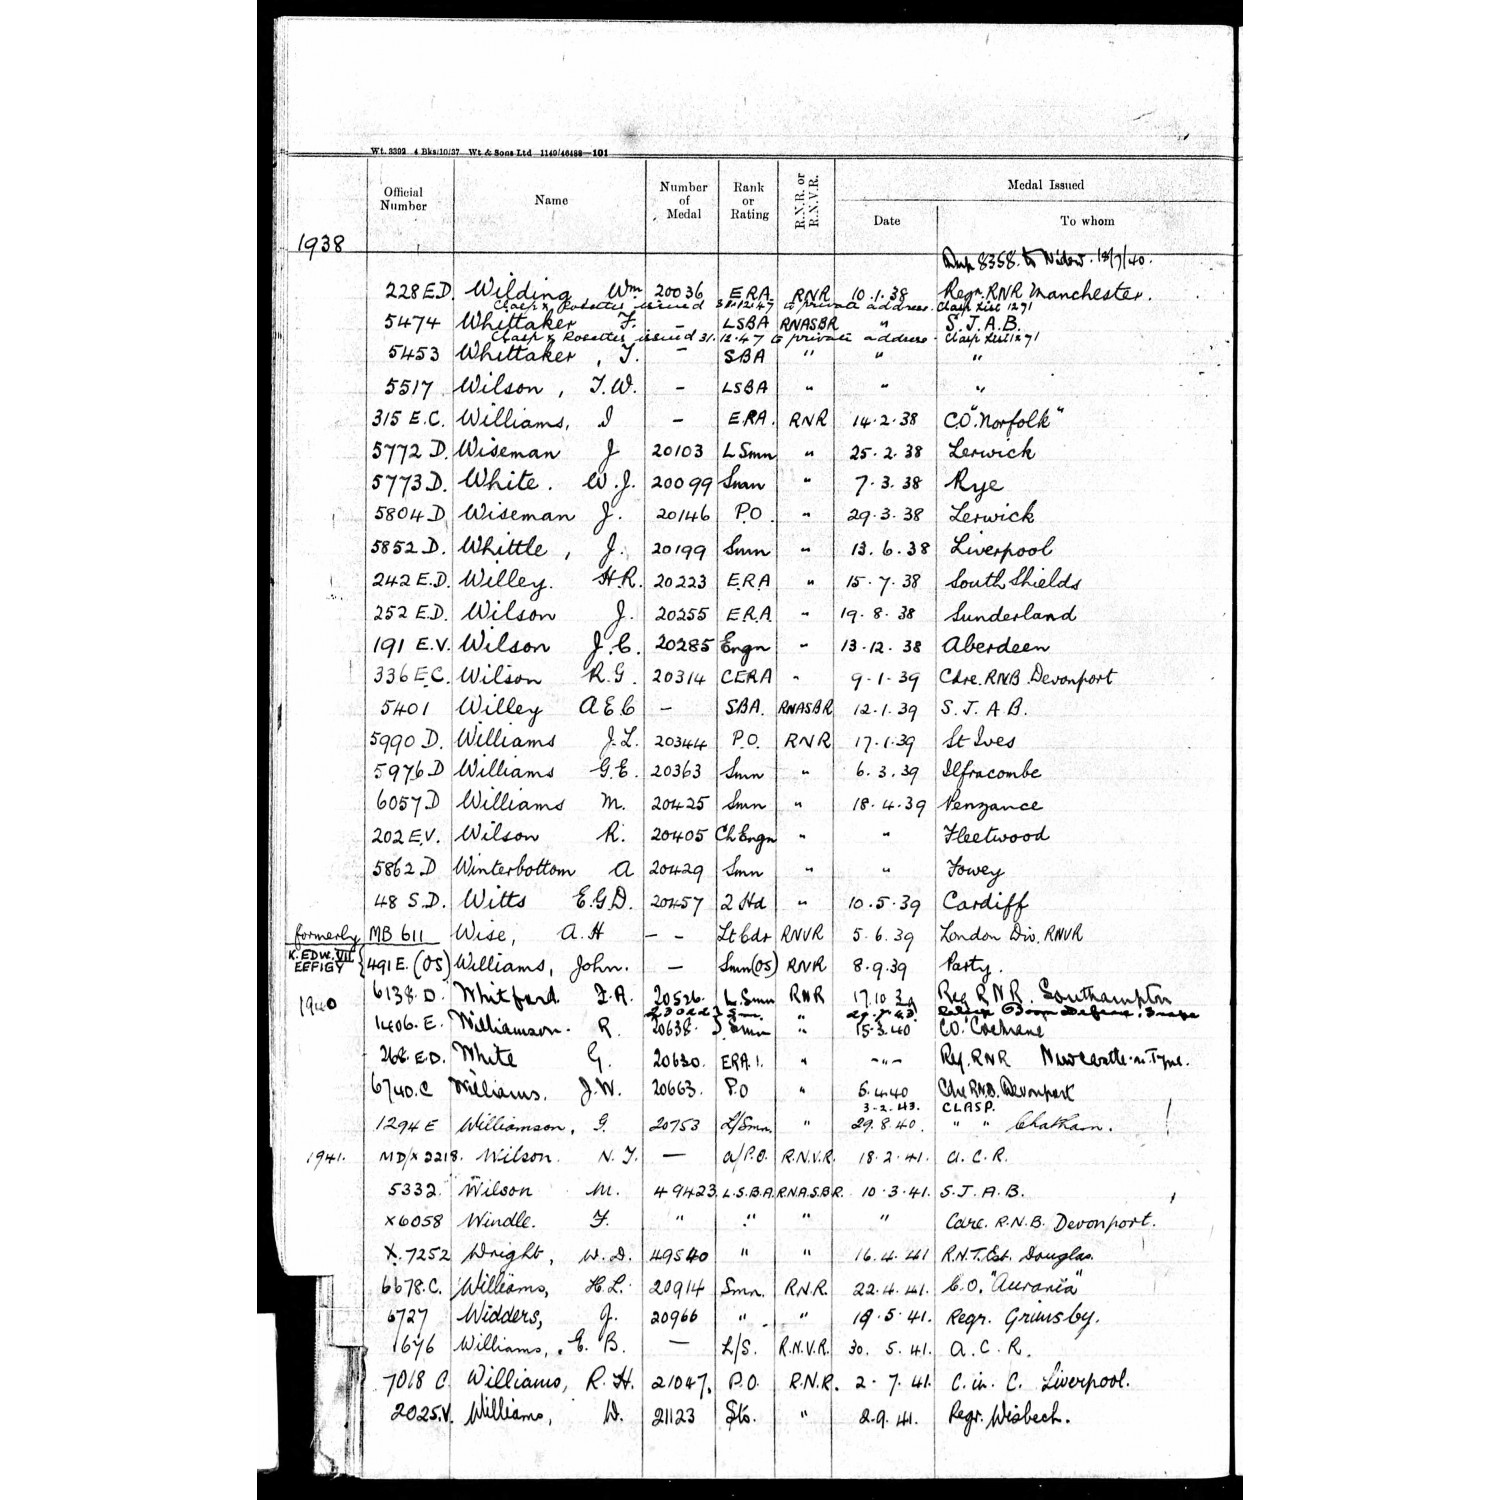 Wt. 3392 4 Bks/10/37 Wt & Sons Ltd 1140/46488—101
Official Number Name Number of Medal Rank or Rating R.N.R. or R.N.V.R. Medal Issued
Date To whom
1938
Dup 8358 to Widow 18/7/40.
228 E.D. Wilding Wm 20036 ERA RNR 10.1.38 Regr. RNR Manchester.
Clasp & Rosettes issued 31.12.47 to private address. Clasp List 1271
5474 Whittaker F. – LSBA RNASBR " S.J.A.B.
Clasp & Rosettes issued 31.12.47 to private address. Clasp List 1271
5453 Whittaker, T. – SBA " " "
5517 Wilson, T.W. – LSBA " " "
315 E.C. Williams, I – ERA. RNR 14.2.38 C.O. "Norfolk"
5772 D. Wiseman J 20103 L Smn " 25.2.38 Lerwick
5773 D. White. W.J. 20099 Sman " 7.3.38 Rye
5804 D Wiseman J. 20146 P.O. " 29.3.38 Lerwick
5852 D. Whittle, J. 20199 Smn " 13.6.38 Liverpool
242 E.D. Willey. H.R. 20223 E.R.A " 15.7.38 South Shields
252 E.D. Wilson J. 20255 E.R.A. " 19.8.38 Sunderland
191 E.V. Wilson J.C. 20285 Engn " 13.12.38 Aberdeen
336 E.C. Wilson R.G. 20314 CERA " 9.1.39 Cdre. RNB. Devonport
5401 Willey A E C – SBA. RNASBR 12.1.39 S.J.A.B.
5990 D. Williams J.L. 20344 P.O. RNR 17.1.39 St Ives
5976 D Williams G.E. 20363 Smn " 6.3.39 Ilfracombe
6057 D Williams M. 20425 Smn " 18.4.39 Penzance
202 E.V. Wilson R. 20405 Ch Engn " " Fleetwood
5862 D Winterbottom A 20429 Smn " " Fowey
48 S.D. Witts E.G.D. 20457 2 Hd " 10.5.39 Cardiff
formerly MB 611 Wise, A.H – – Lt Cdr RNVR 5.6.39 London Div. RNVR
K. EDW. VII EFFIGY { 491 E. (OS) Williams, John. – Smn (OS) RNR 8.9.39 Party.
1940 6138. D. Whitford F.A. 20526. L. Smn RNR 17.10.39 Reg R.N.R. Southampton
Boom Defence
1406. E. Williamson. R. 20638. Smn " 15.3.40 C.O. Cochrane
268. E.D. White G. 20630. ERA 1. " -"- Reg. RNR Newcastle-n-Tyne.
6740. C Williams. J.W. 20663. P.O " 5.4.40 Cdre RNB. Devonport
3-2.43. CLASP.
1294 E Williamson, G. 20753 L/Smn. " 29.8.40. " " Chatham.
1941. MD/X 2218. Wilson. N.T. — A/P.O. R.N.V.R. 18.2.41. A.C.R.
5332. Wilson M. 49423 L.S.B.A. R.N.A.S.B.R. 10.3.41. S.J.A.B.
X6058 Windle. F. " " " " Cdre. R.N.B. Devonport.
X.7252 Wright, W.D. 49540 " " 16.4.41 R.N.T. Est. Douglas.
6678. C. Williams, H.L. 20914 Smn. R.N.R. 22.4.41. C.O. "Aurania"
6727 Widders, J. 20966 " " 19.5.41. Regr. Grimsby.
1676 Williams, E.B. — L/S. R.N.V.R. 30.5.41. A.C.R.
7018 C. Williams, R.H. 21047. P.O. R.N.R. 2.7.41. C. in. C. Liverpool.
2025.V. Williams, W. 21123 Sto. " 2.9.41. Regr. Wisbech.